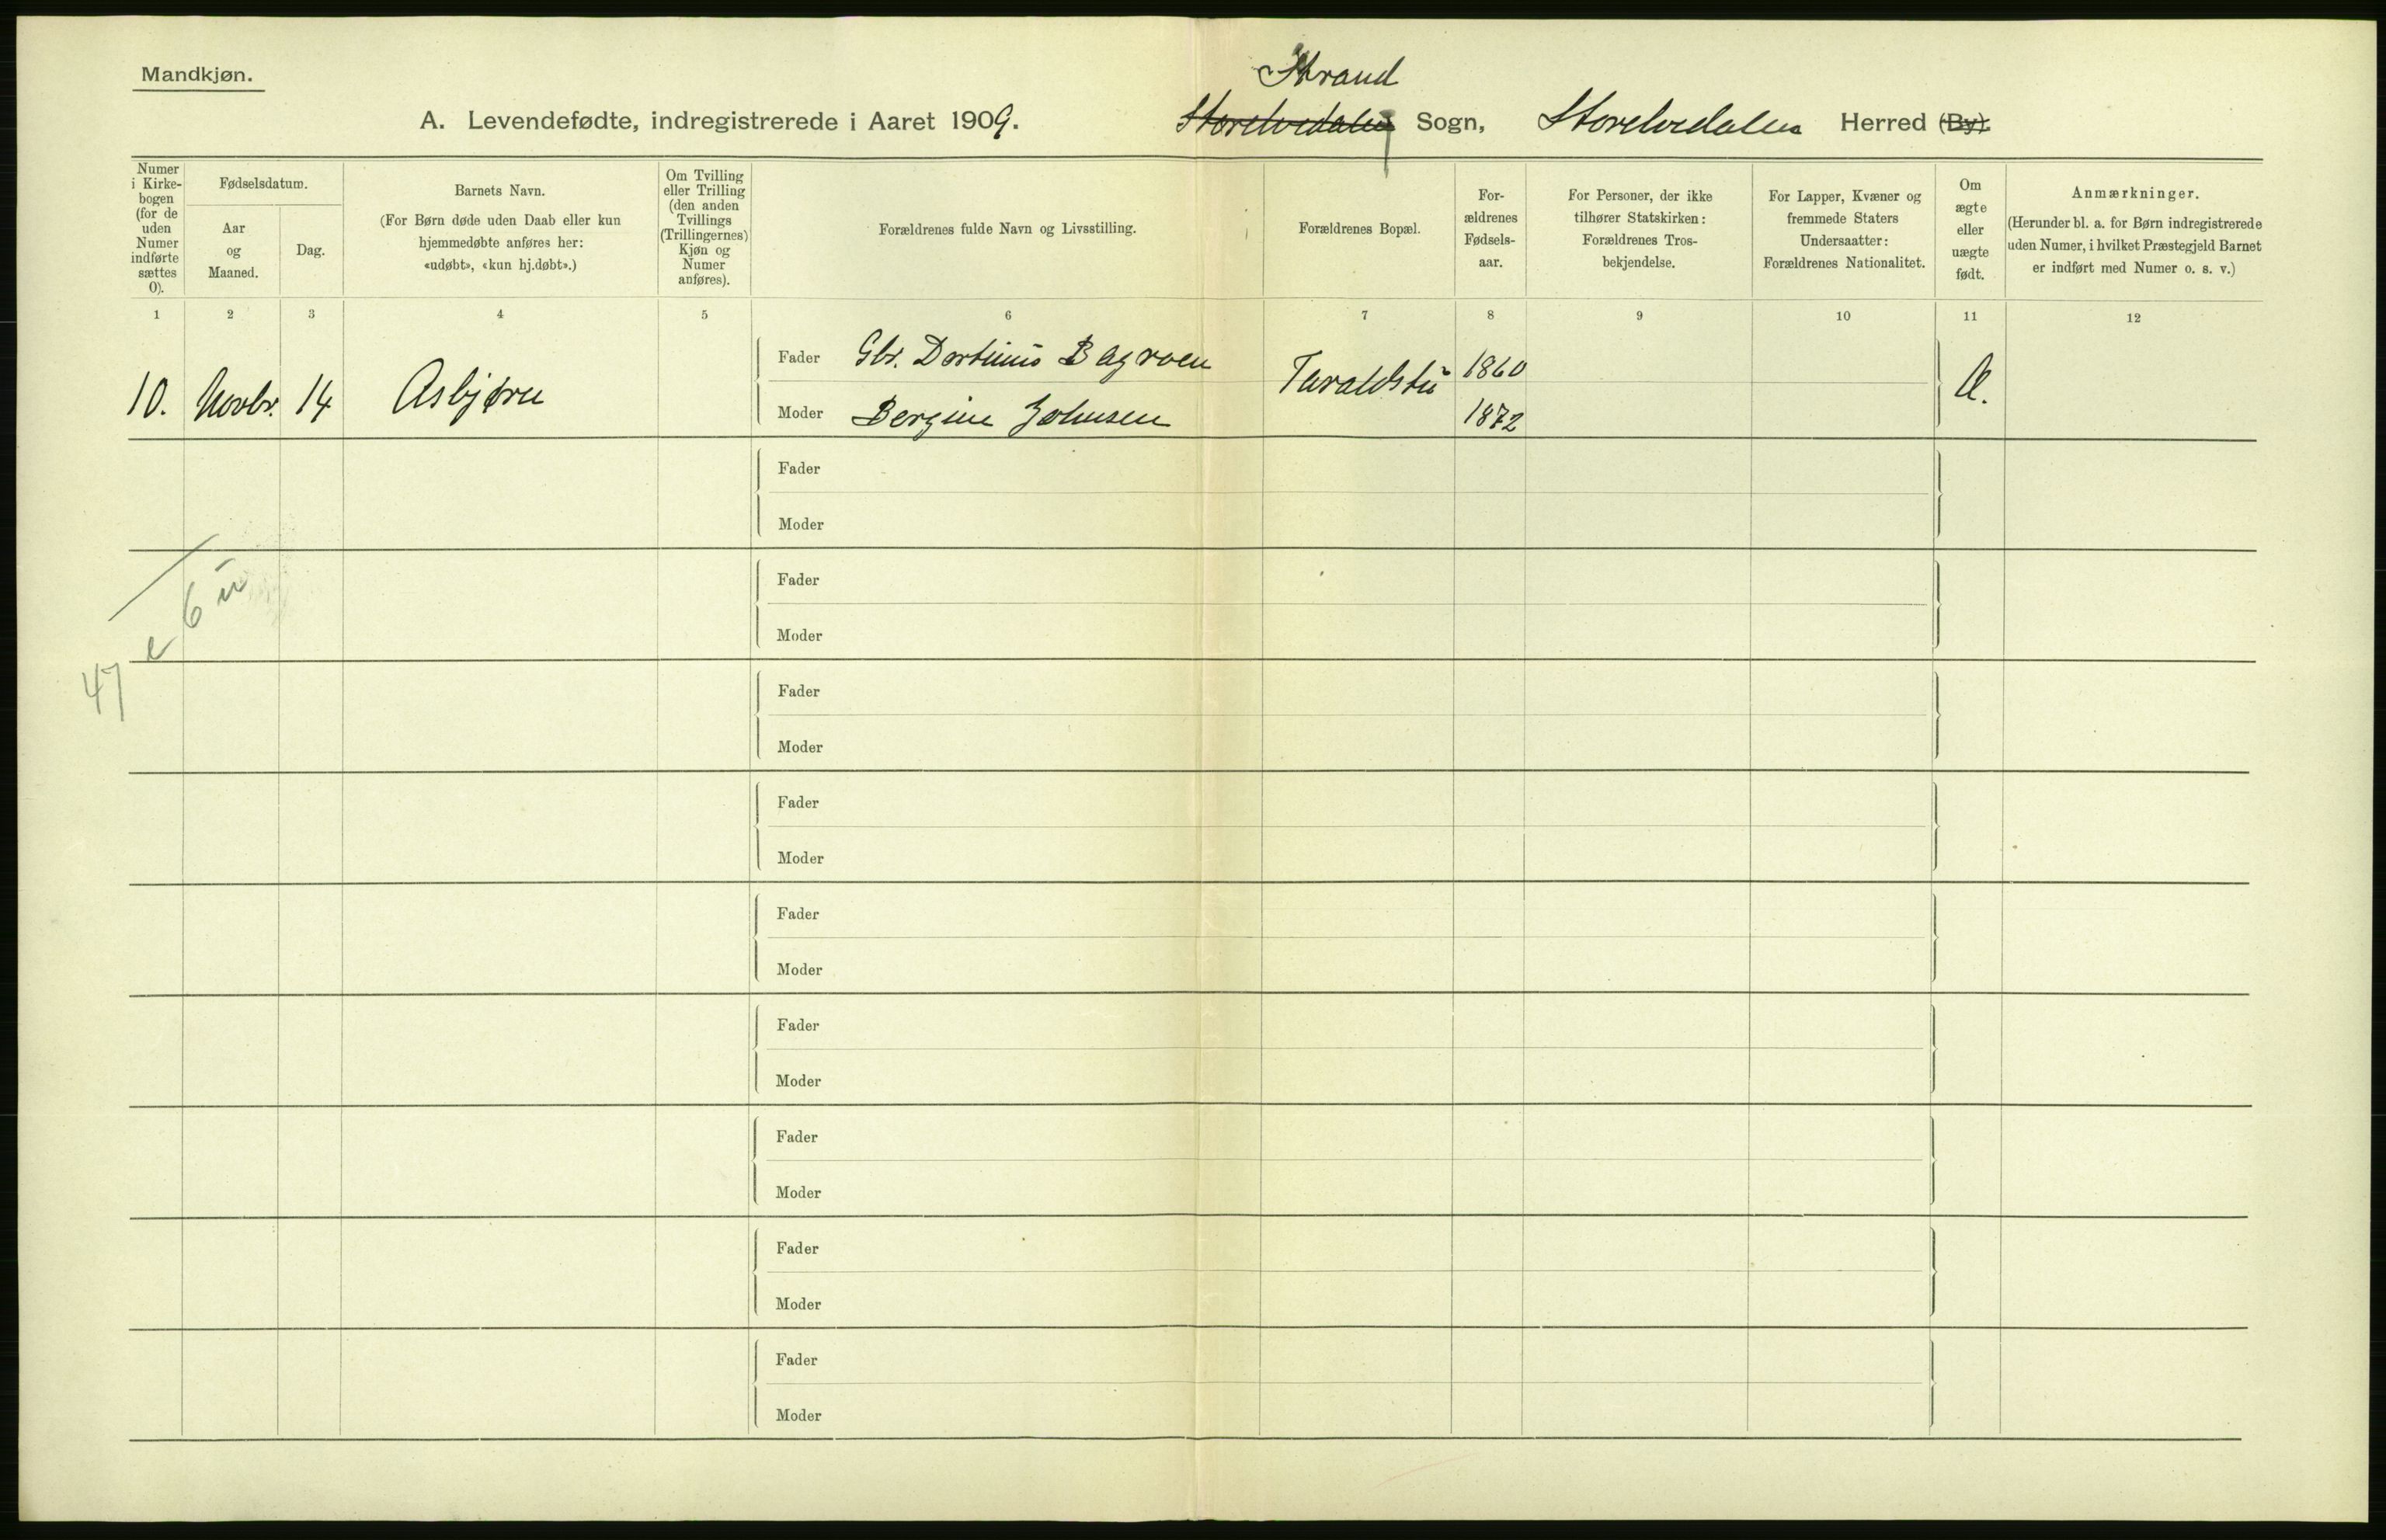 Mandkjøn.
A. Levendefødte, indregistrerede i Aaret 1909.
Strand
Storelvedalen Sogn, Storelvedalen Herred (By).
Numer i Kirke-bogen (for de uden Numer indførte sættes 0).
Fødselsdatum.
Aar og Maaned.
Dag.
Barnets Navn.
(For Børn døde uden Daab eller kun
hjemmedøbte anføres her:
«udøbt», «kun hj.døbt».)
Om Tvilling
eller Trilling
(den anden
Tvillings
(Trillingernes)
Kjøn og
Numer
anføres).
Forældrenes fulde Navn og Livsstilling.
Forældrenes Bopæl.
For-
ældrenes
Fødsels-
aar.
For Personer, der ikke
tilhører Statskirken:
Forældrenes Tros-
bekjendelse.
For Lapper, Kvæner og
fremmede Staters
Undersaatter:
Forældrenes Nationalitet.
Om
ægte
eller
uægte
født.
Anmærkninger.
(Herunder bl. a. for Børn indregistrerede
uden Numer, i hvilket Præstegjeld Barnet
er indført med Numer o. s. v.)
1 2 3 4 5 6 7 8 9 10 11 12
Fader Gbr. Dortinus Bagroen 1860
10. Novbr. 14 Asbjørn Æ.
Moder Bergine Johnsen 1872
Fader
Moder
Fader
6 u
Moder
47 e
Fader
Moder
Fader
Moder
Fader
Moder
Fader
Moder
Fader
Moder
Fader
Moder
Fader
Moder